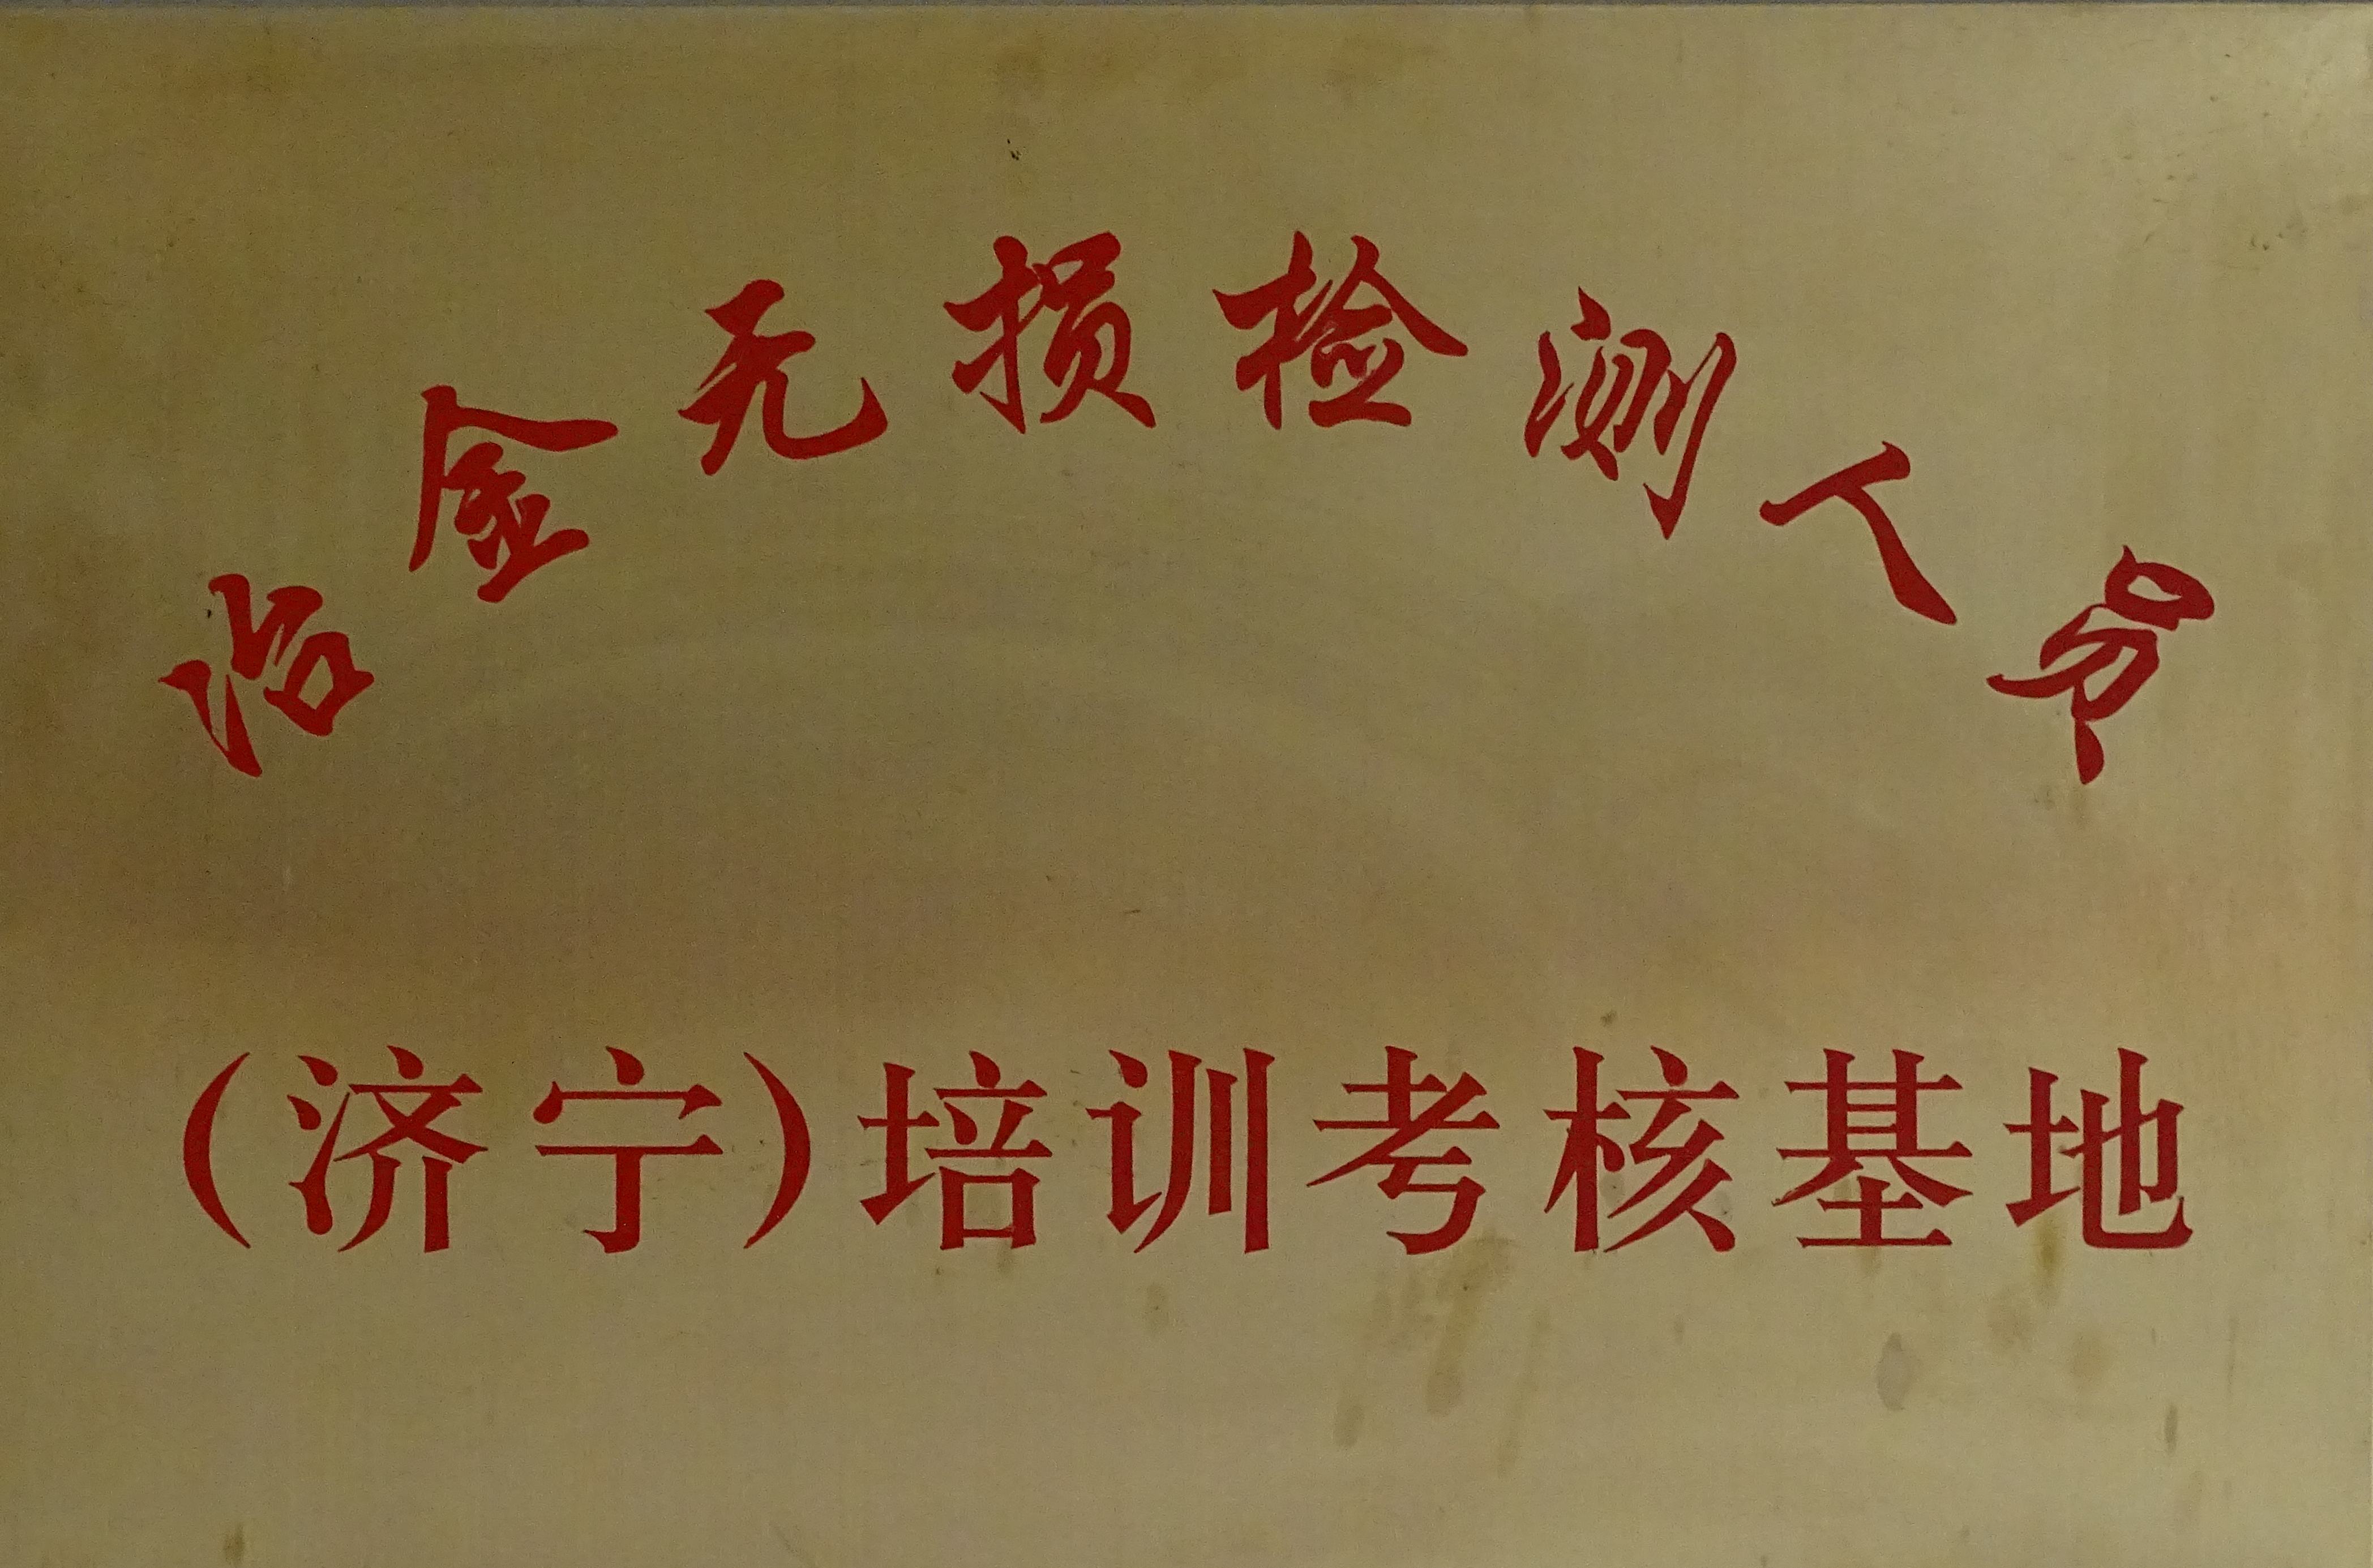 冶金无损检测人员
(济宁)培训考核基地